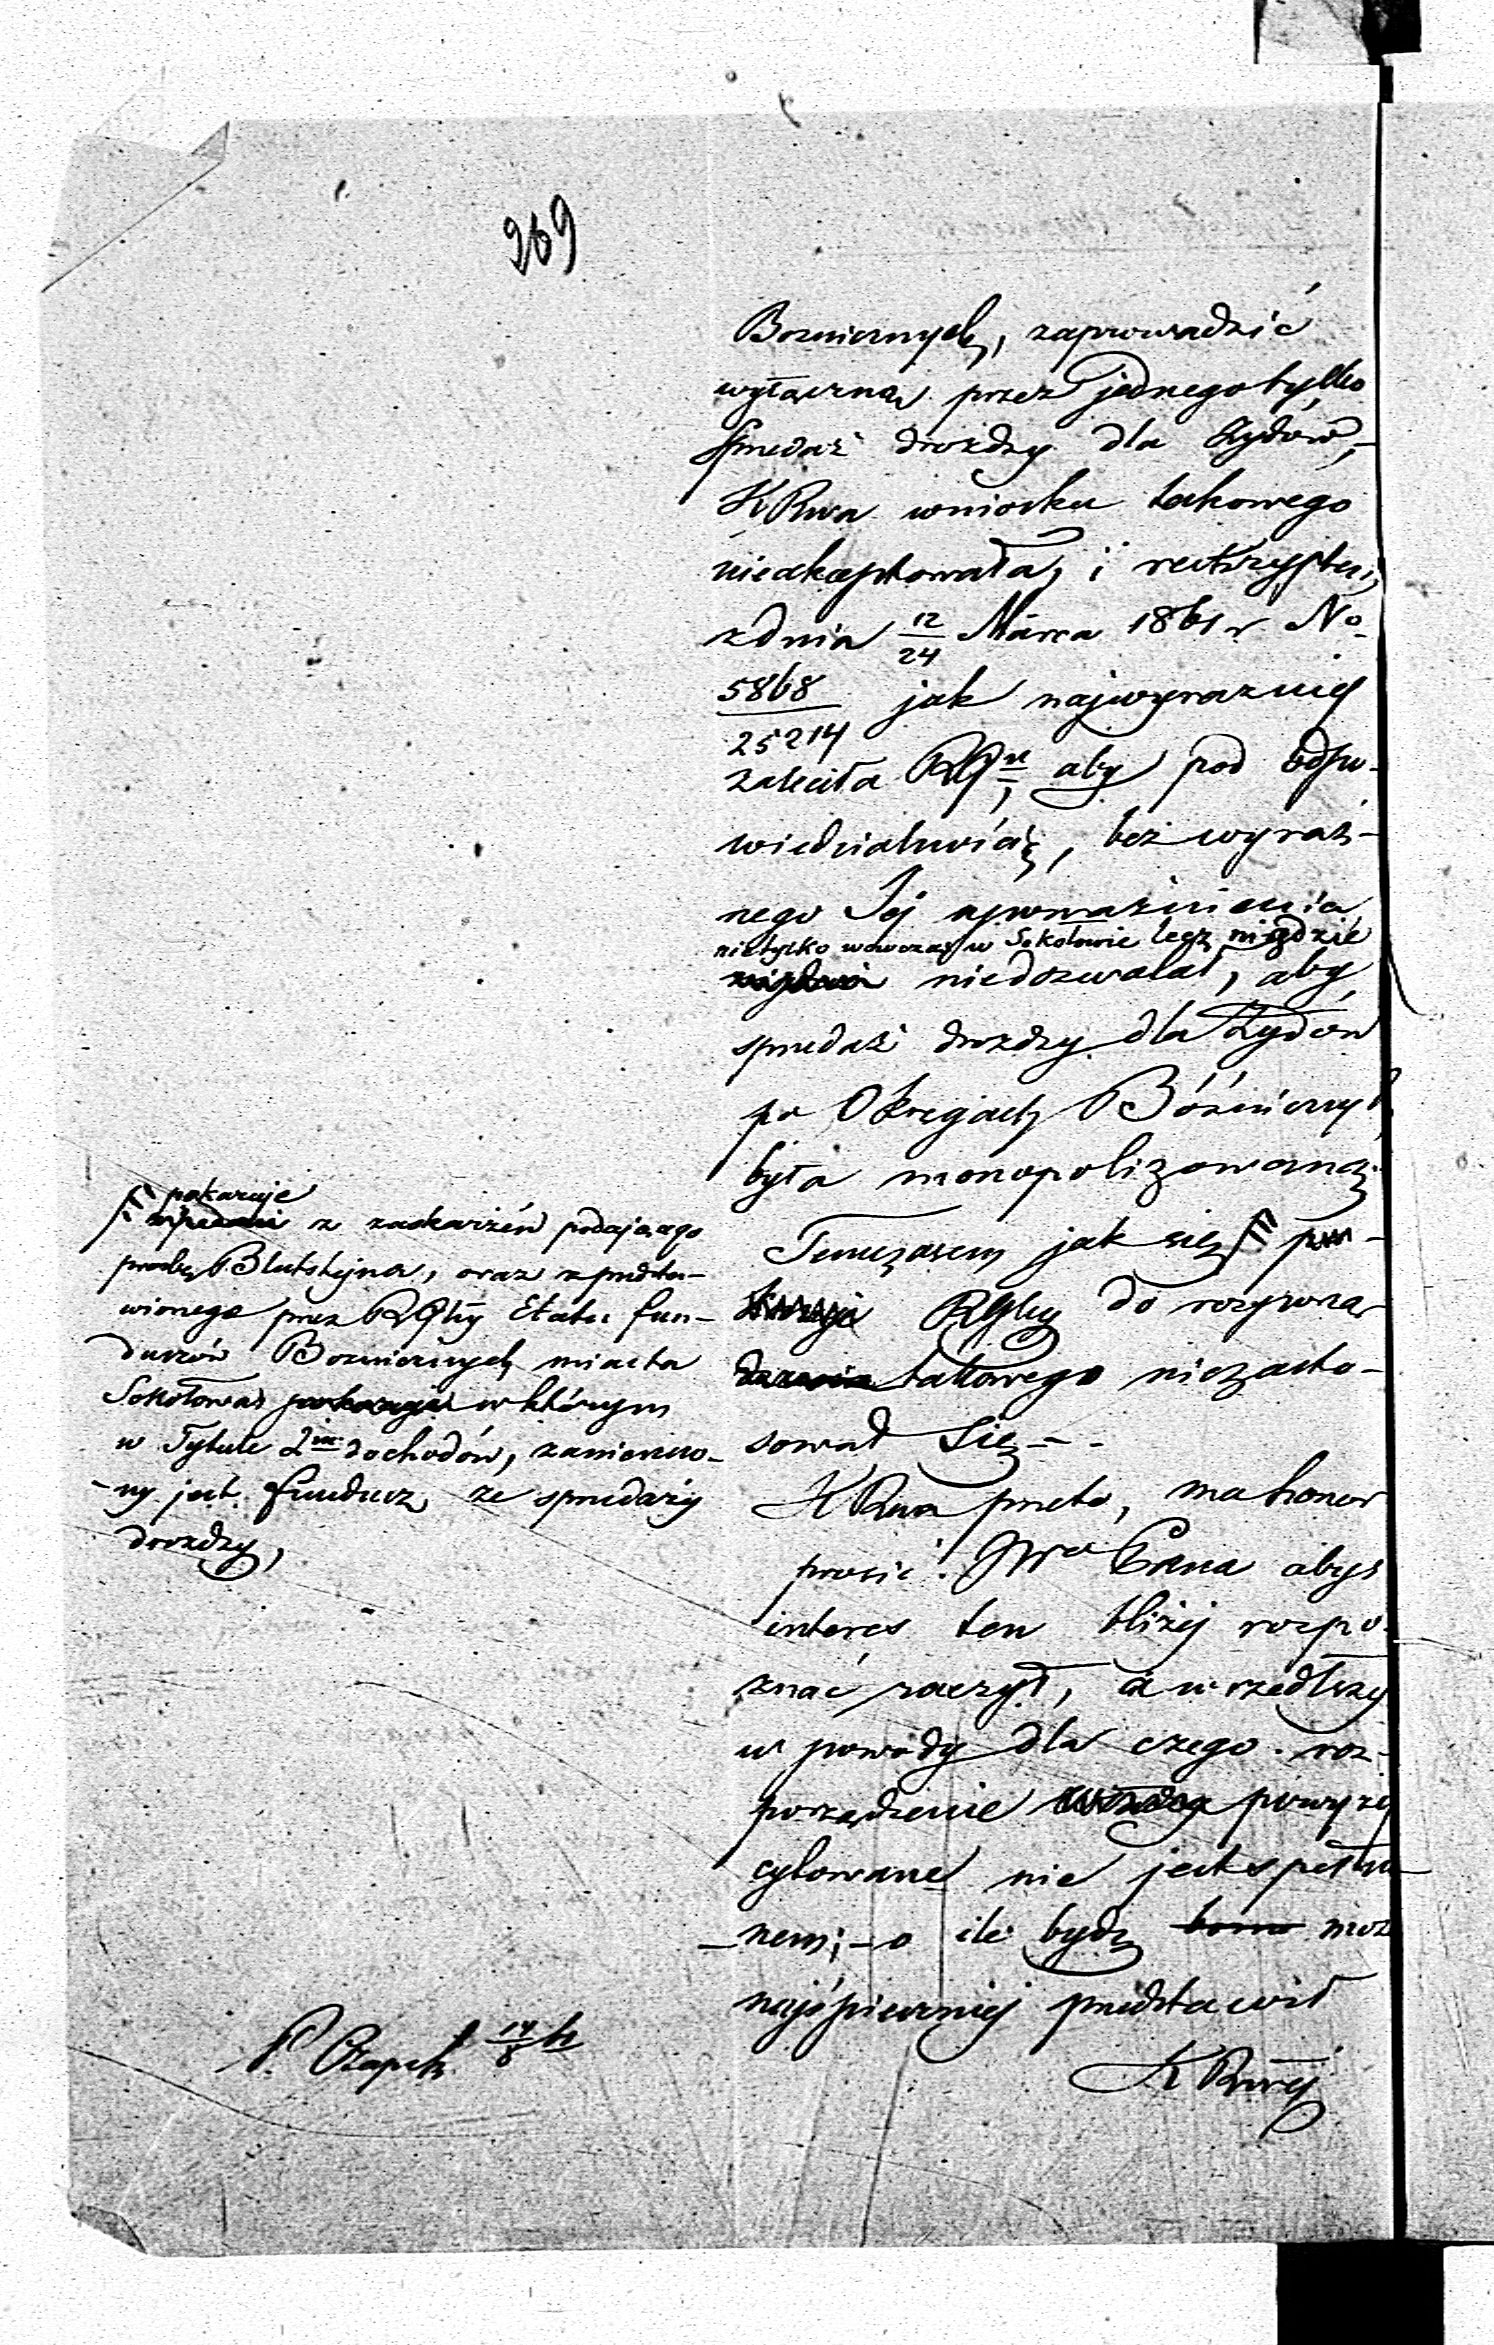 269
Boznicznych, zaprowadzić
wyłączną przez jednego tylko
sprzedaż drożdzy dla Żydów,-
KRwa wniosku takowego
nieakceptowała, i
z dnia 12/24 Marca 1861 r No
5868/25214 jak najwyrazniej
zaleciła RG aby pod odpo-
wiedzialnością, bez wyraź-
nego Jej upoważnienia
nietylko wowczas w Sokołowie lecz nigdzie
niedozwalał, aby
sprzedaż drozdzy dla Żydów
po Okręgach Bóżniczych
była monopolizowaną.
Tymczasem jak się
RGlny do rozporzą
dzenia takowego niezasto-
sował się.-
KRwa przeto, ma honor
prosić JWo Pana abyś
interes ten bliżej rozpo-
znać raczył, a wszedłszy
w powody dla czego roz-
porządzenie powyżej
cytowane nie jest spełnio-
-nem;- o ile będzie moż
najśpieszniej przedstawił
KRwej
pokazuje
z zaskarżeń podającego
prosbę Blutsztejna, oraz z przedsta-
wionego przez RGlny Etatu fun-
duszów Bozniczych miasta
Sokołowa w którym
w Tytule 2im dochodów, zamieszczo-
-ny jest fundusz ze sprzedaży
drozdzy,
P. Czapek 14/8